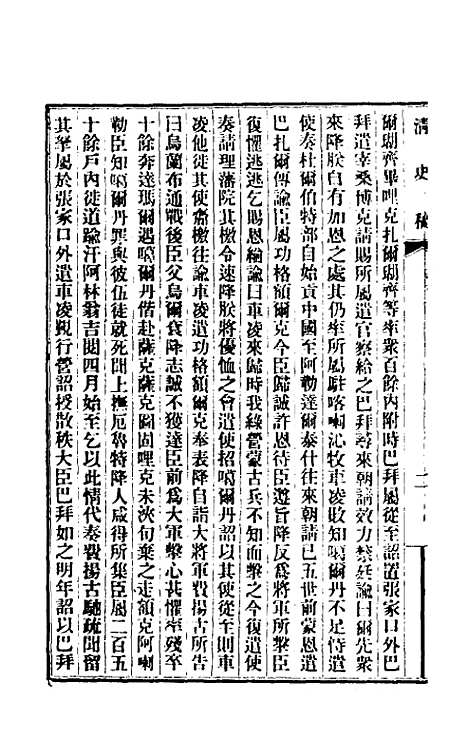 清史稿
爾瑚齊畢哩克扎爾瑚齊等率衆百餘內附時巴拜屬從至詔置張家口外巴
拜遣宰桑博克請賜所屬遣官察給之巴拜尋來朝請效力禁廷諭曰爾先衆
來降朕自有加恩之處其仍率所屬駐喀喇沁牧車凌敗知噶爾丹不足恃遣
使奏杜爾伯特部自始貢中國至阿勒達爾泰什往來朝請已五世前蒙恩遣
巴扎爾傳諭臣屬功格額爾克今臣歸誠許恩待臣遵旨降反爲將軍所擊臣
復懼逃逃乞賜恩綸諭曰車凌來歸時我綠營蒙古兵不知而擊之今復遣使
奏請理藩院其檄令速降朕將優恤之會遣使招噶爾丹詔以其使從至則車
凌他徙其使齎檄往諭車凌遣功格額爾克奉表降自詣大將軍費揚古所告
曰烏蘭布通戰後臣父烏爾袞降志誠不獲達臣前爲大軍擊心甚懼率殘卒
十餘奔達瑪爾遇噶爾丹偕赴薩克薩克圖固哩克未浹旬棄之走額克阿喇
勒臣知噶爾丹罪與彼伍徒就死聞上撫厄魯特降人咸得所集臣屬二百五
十餘戶內徙道踰汗阿林翁吉閱四月始至乞以此情代奏費揚古馳疏聞留
其孥屬於張家口外遣車凌覲行營詔授散秩大臣巴拜如之明年詔以巴拜